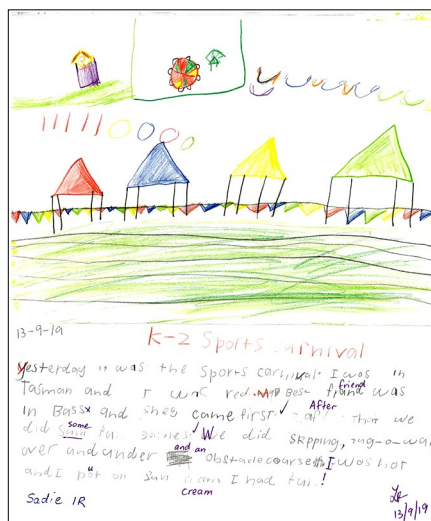 13-9-19
K-2 Sports carnival
Yesterday it was the Sports carnival I was in
Tasman and I was red. My Best friend was
in Bass and she came first. After that we
did some fun games. We did skipping, tug-o-war
over and under and an obstacle course. I was hot
and I put on sun cream I had fun!
Sadie 1R
13/9/19